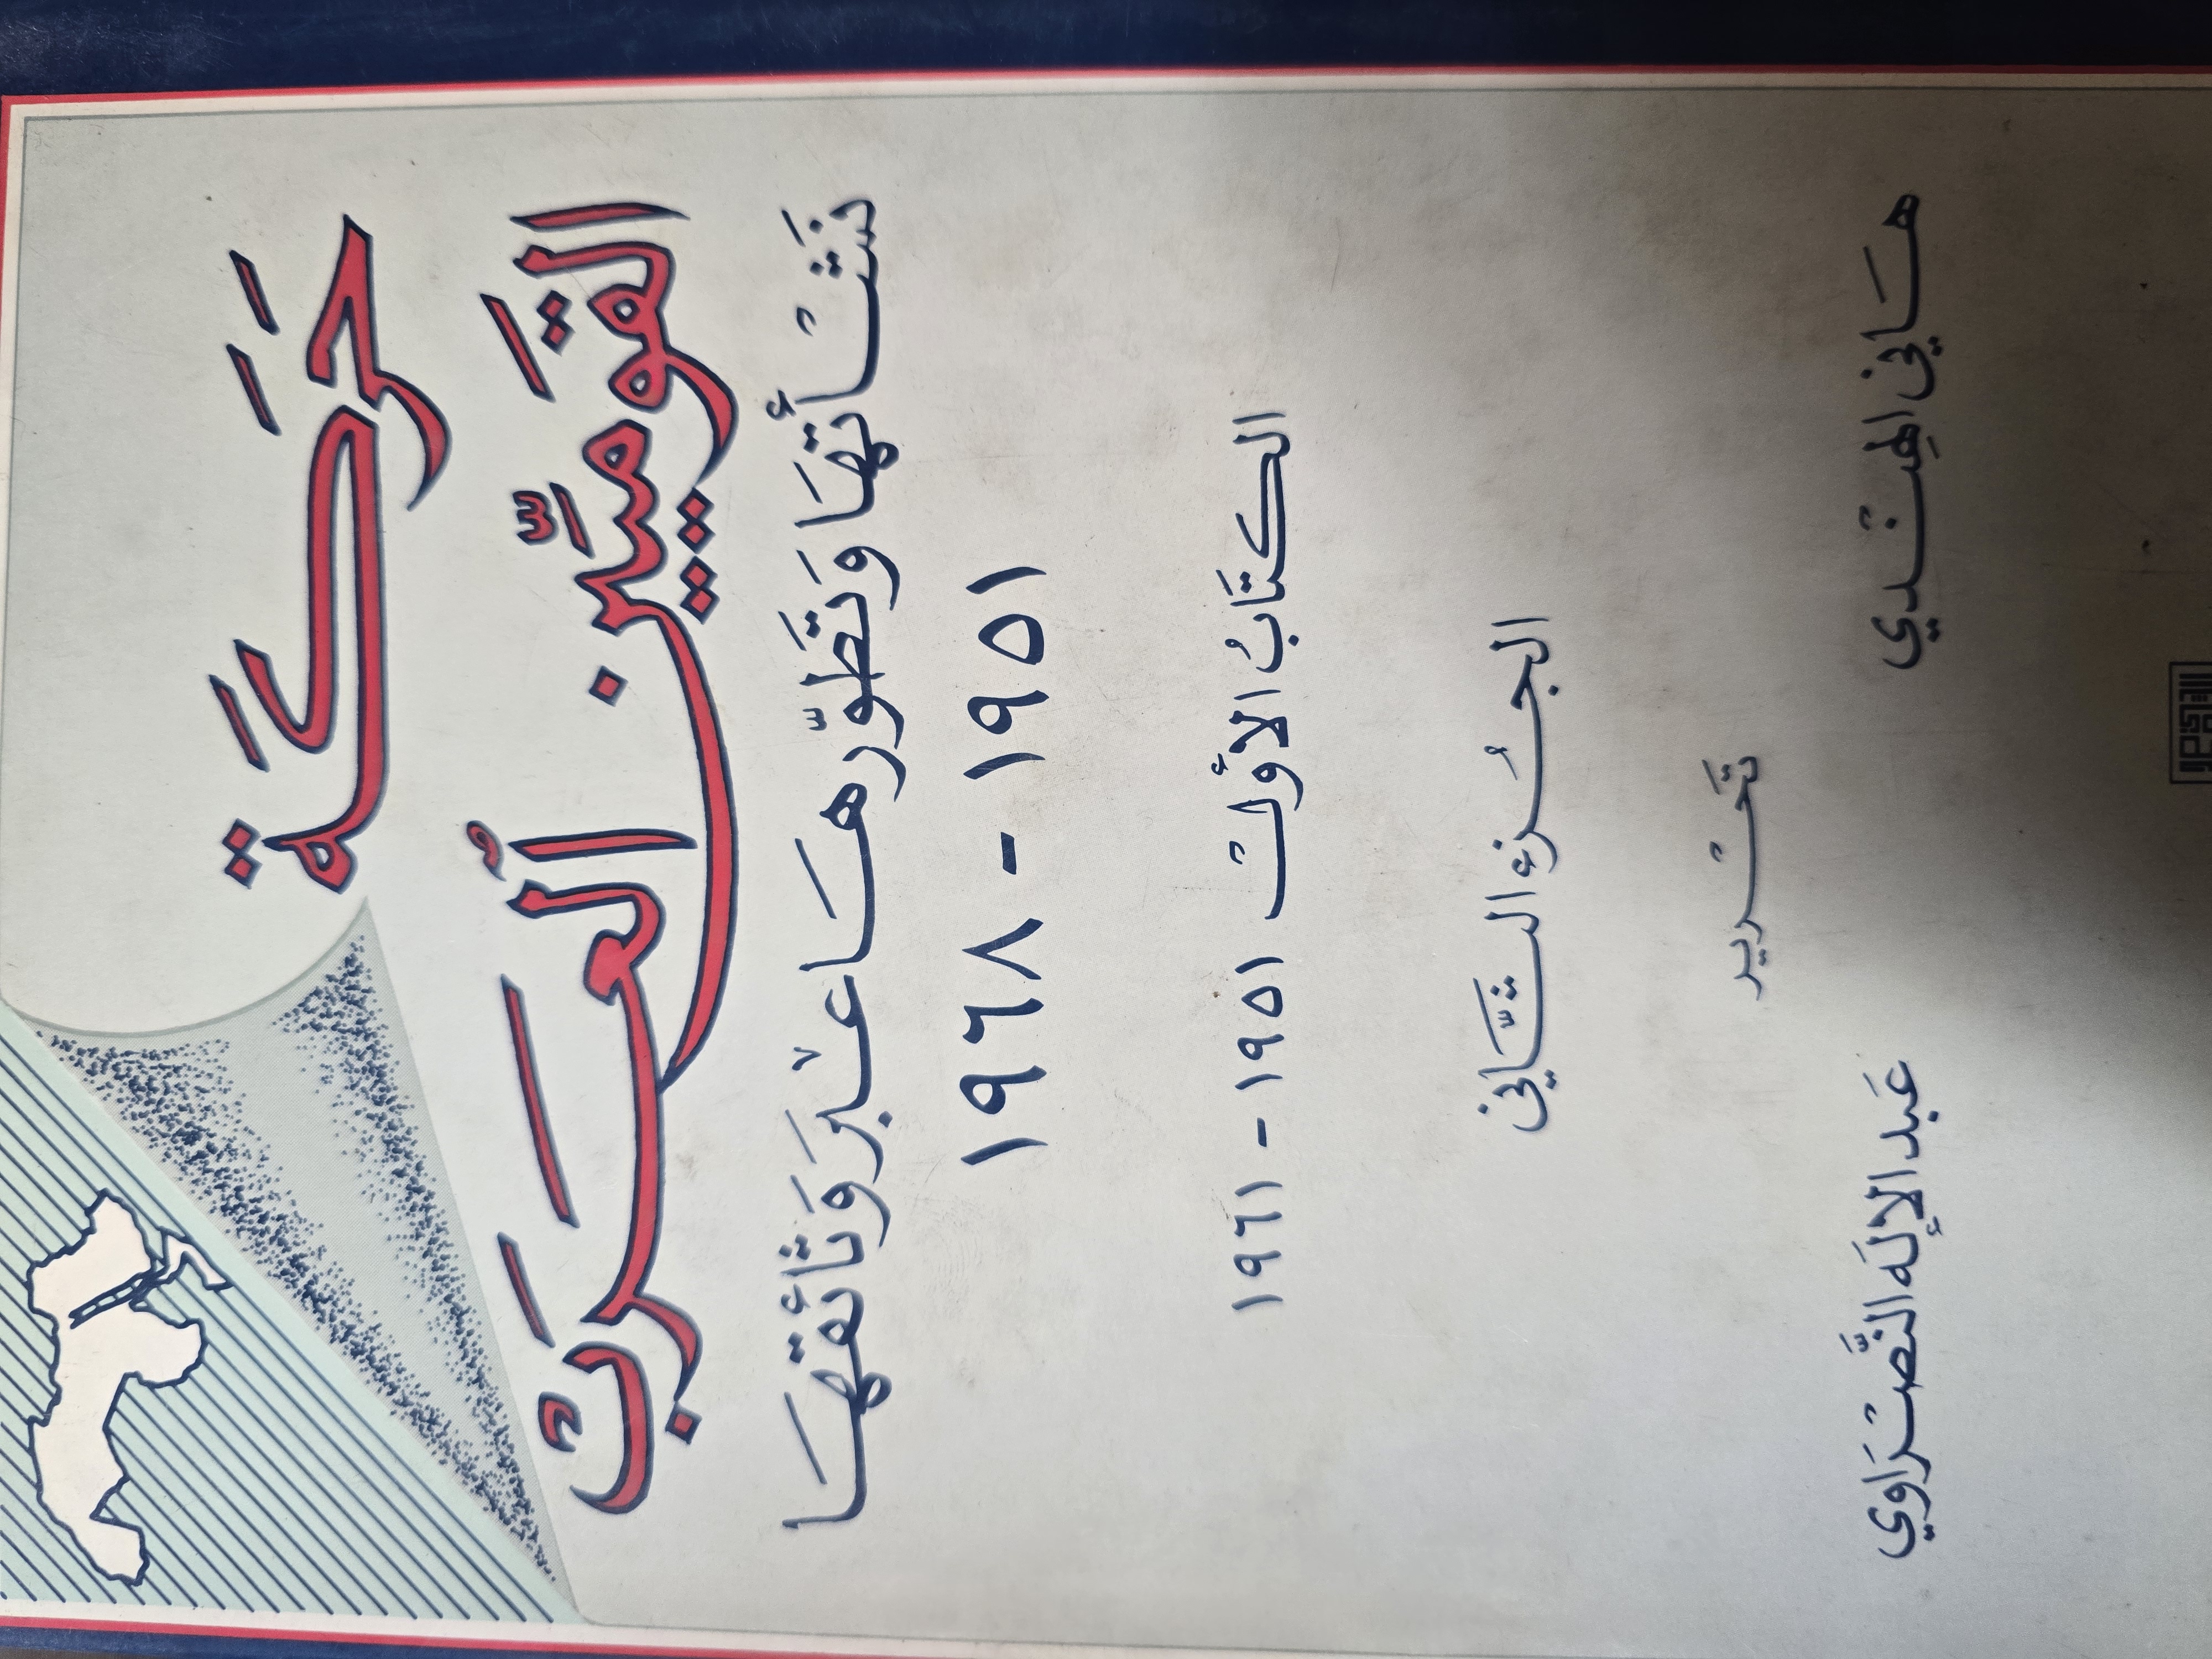 حَرَكَة
القَوميّين العَرَبْ
نَشْأتهَا وَتَطوّرهَا عبْر وَثائقهَا
١٩٥١ - ١٩٦٨
الكتَابُ الأول ١٩٥١ - ١٩٦١
الجُزء الثَّاني
تَحْرير
هَاني الهِنْدي
عَبد الإله النَّصْرَاوي